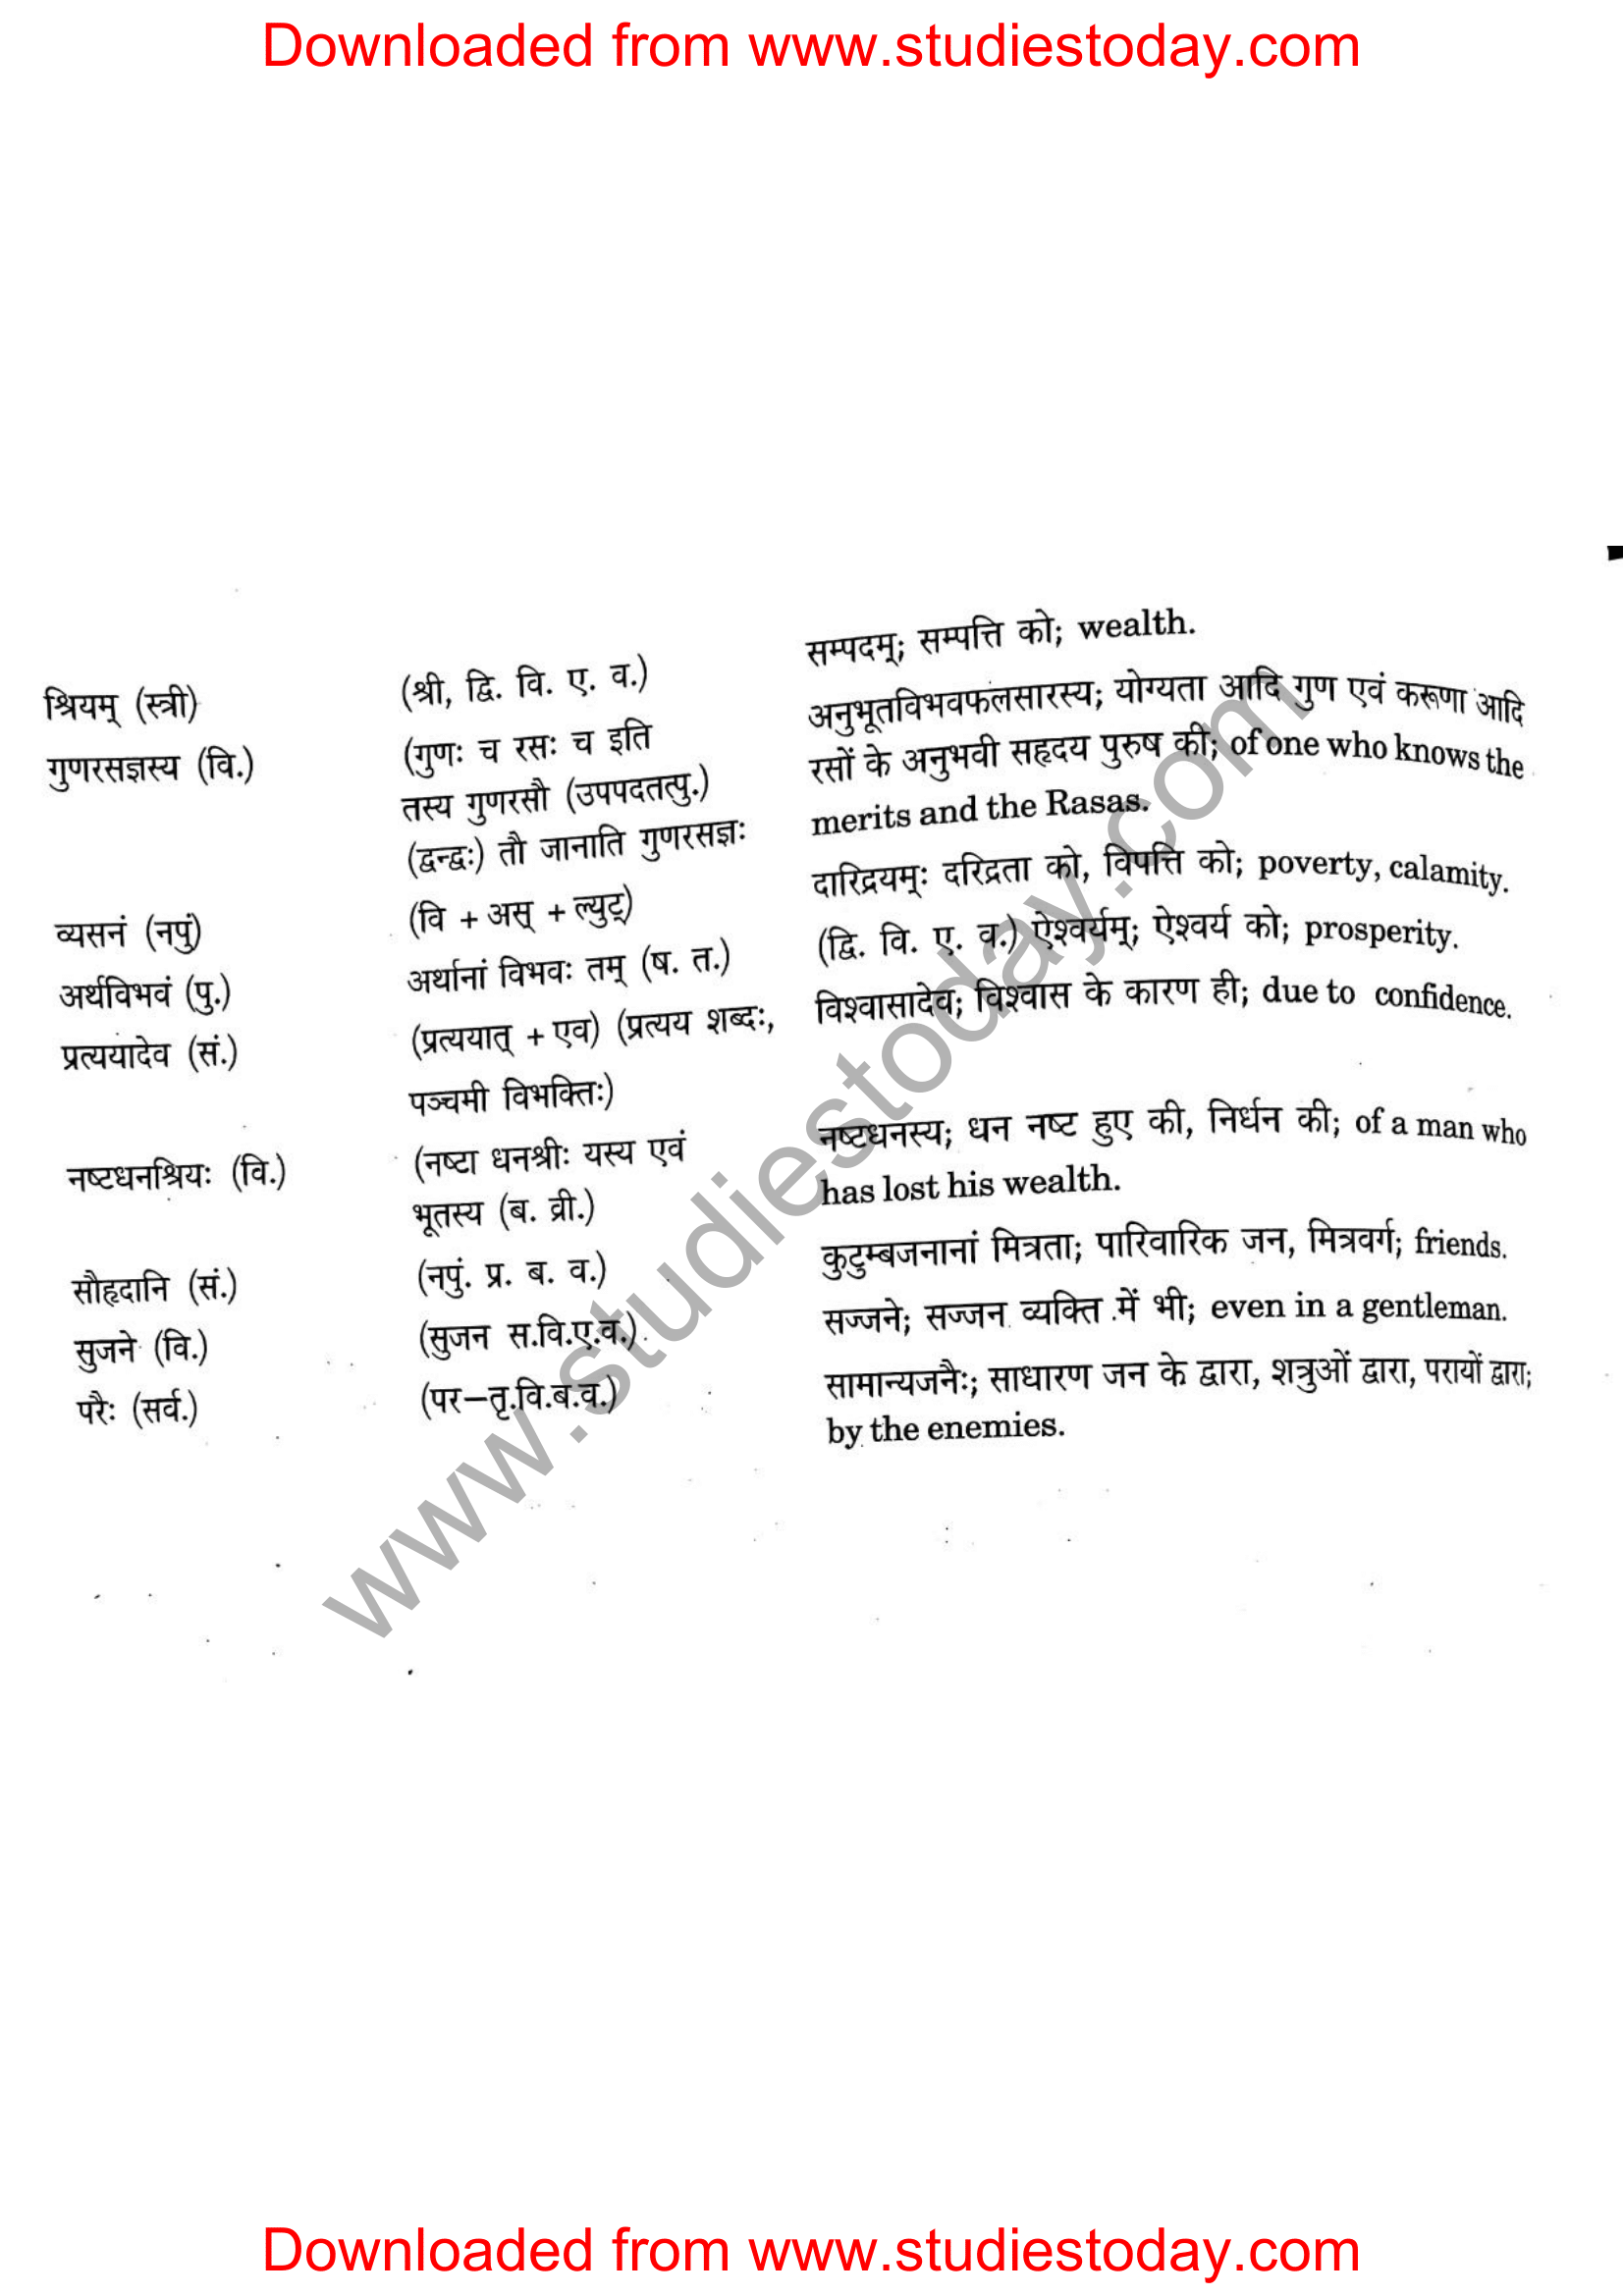 Downloaded from www.studiestoday.com
श्रियम् (स्त्री) (श्री, द्वि. वि. ए. व.) सम्पदम्; सम्पत्ति को; wealth.
गुणरसज्ञस्य (वि.) (गुणः च रसः च इति अनुभूतविभवफलसारस्य; योग्यता आदि गुण एवं करूणा आदि
तस्य गुणरसौ (उपपदतत्पु.) रसों के अनुभवी सहृदय पुरुष की; of one who knows the
(द्वन्द्वः) तौ जानाति गुणरसज्ञः merits and the Rasas.
व्यसनं (नपुं) (वि + अस् + ल्युट्) दारिद्रयम्ः दरिद्रता को, विपत्ति को; poverty, calamity.
अर्थविभवं (पु.) अर्थानां विभवः तम् (ष. त.) (द्वि. वि. ए. व.) ऐश्वर्यम्; ऐश्वर्य को; prosperity.
प्रत्ययादेव (सं.) (प्रत्ययात् + एव) (प्रत्यय शब्दः, विश्वासादेव; विश्वास के कारण ही; due to confidence.
पञ्चमी विभक्तिः)
नष्टधनश्रियः (वि.) (नष्टा धनश्रीः यस्य एवं नष्टधनस्य; धन नष्ट हुए की, निर्धन की; of a man who
भूतस्य (ब. व्री.) has lost his wealth.
सौहृदानि (सं.) (नपुं. प्र. ब. व.) कुटुम्बजनानां मित्रता; पारिवारिक जन, मित्रवर्ग; friends.
सुजने (वि.) (सुजन स.वि.ए.व.) सज्जने; सज्जन व्यक्ति में भी; even in a gentleman.
परैः (सर्व.) (पर–तृ.वि.ब.व.) सामान्यजनैः; साधारण जन के द्वारा, शत्रुओं द्वारा, परायों द्वारा;
by the enemies.
www.studiestoday.com
Downloaded from www.studiestoday.com